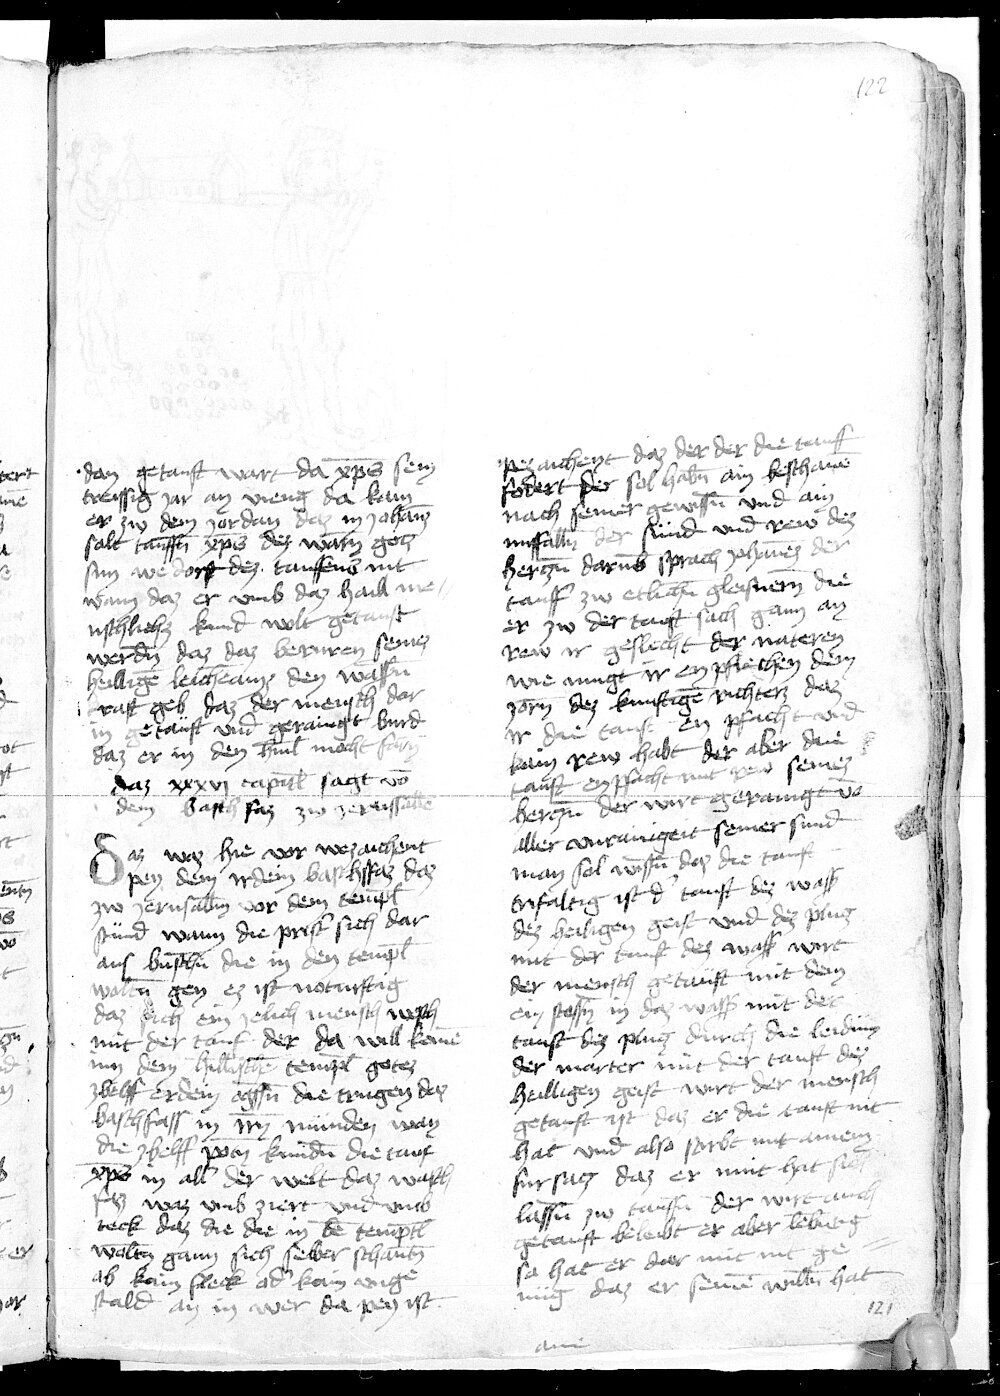 122
dan getauft wart da xp̄s sein
treissig jar an vieng da kam
er zw dem jordan daz in johans
solt tauffn̄ xp̄s dez warn gotz
sun we dorft dez tauffens nit
wann daz er umb daz hail me
nschlichz kund wolt getauft
werdn̄ daz daz beruren seines
heillige leicheamz den wassn̄
kraft geb daz der mensch dar
in getauft und geraingt wurd
daz er in den himl mocht farn
daz xxxvi capitl sagt vō
dem wasch faz zw jerussalē
Daz waz hie vor wezaichent
pey dem irdein waschffaz daz
zw jerusalem vor dem templ
stund wann die prister sich dar
aus wuschn̄ die in den templ
woltn̄ gen ez ist noturftig
daz sich ein jelich mensch wesch
mit der tauf der da will komē
inn dem hillischē templ gotez
zbelff erdein ogssn̄ die trugen daz
waschfass in irn munden wan
die zbelff poten kundn̄ die tauf
xp̄s in all der welt daz wasch
faz waz umb ziert und umb
teck daz die die in dē templ
woltn̄ gann sich selber schautn̄
ab kain fleck od' kain unge
stald an in wer da pey ist
wezaichent daz der der die tauff
fodert der sol habn̄ ain beschawē
nach seiner gewissn̄ und ain
missfalln̄ der sund und rew dez
herczn̄ darub sprach johanes der
tauff zw etlichn̄ gleisnern die
er zw der tauft sach gann an
rew ir geslecht der nateren
wie mugt ir enpfliechen dem
zorn dez kunftigē richterz daz
ir die tauft enpfacht und
kain rew habt der aber die
tauft enpfacht mit rew seines
herczn̄ der wirt geraingt vō
aller unrainigeit seiner sund
man sol wissn̄ daz die tauf
trifaltig ist d' tauft dez wass
dez heiligen geist und dez plutz
mit der tauf dez wass wirt
der mensch getauft mit dem
ein stossn̄ in daz wass mit der
tauft dez plutz durch die leidung
der marter mit der tauft dez
heilligen geist wirt der mensch
getauft ist daz er die tauft nit
hat und also stirbt mit ainem
fursatz daz er mut hat sich
lassn̄ zw tauffn̄ der wirt auch
getauft beleibt er aber lebentig
so hat er dar mit nit ge
nug daz er seinē willn̄ hat
121